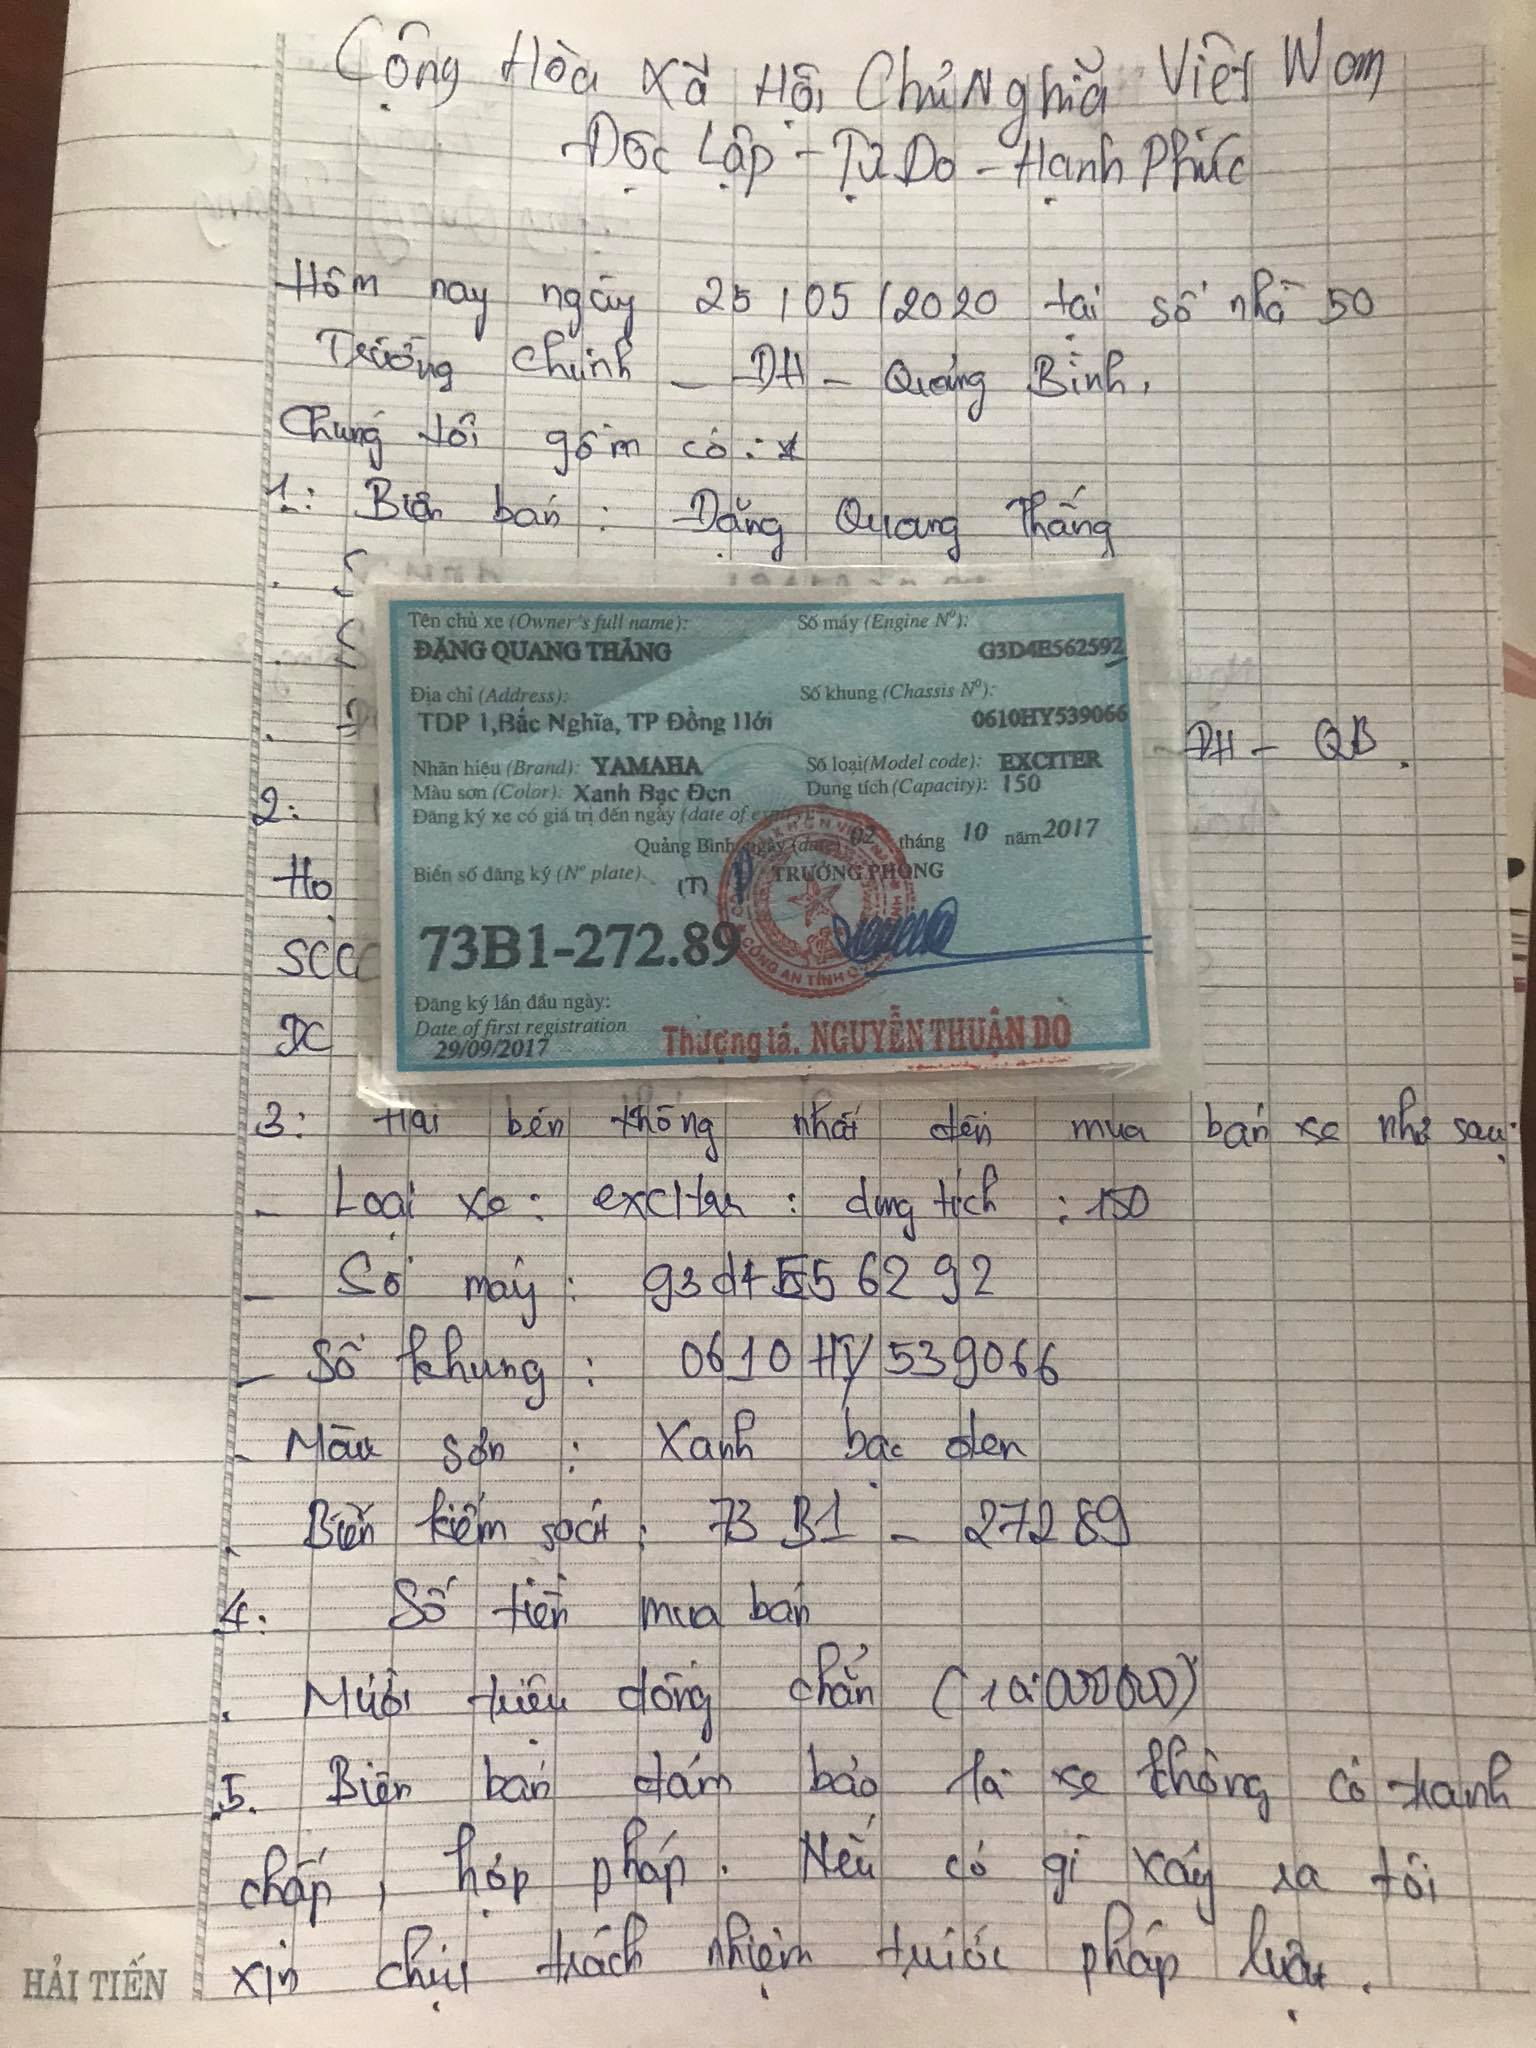 Cộng Hòa Xã Hội Chủ Nghĩa Việt Nam
Độc Lập - Tự Do - Hạnh Phúc
Hôm nay ngày 25/05/2020 tại số nhà 50
Trường Chinh - ĐH - Quảng Bình.
Chúng tôi gồm có:
1: Biên bán: Đặng Quang Thắng
Tên chủ xe (Owner's full name):
ĐẶNG QUANG THẮNG
Số máy (Engine Nº):
G3D4E562592
Địa chỉ (Address):
TDP 1,Bắc Nghĩa, TP Đồng Hới
Số khung (Chassis Nº):
0610HY539066
Nhãn hiệu (Brand): YAMAHA
Số loại(Model code): EXCITER
Màu sơn (Color): Xanh Bạc Đen
Dung tích (Capacity): 150
Đăng ký xe có giá trị đến ngày (date of expiry)
Quảng Bình, ngày (date) 02 tháng 10 năm 2017
Biển số đăng ký (Nº plate)
(T) TRƯỞNG PHÒNG
73B1-272.89
CÔNG AN TỈNH
Đăng ký lần đầu ngày:
Date of first registration
29/09/2017
Thượng tá. NGUYỄN THUẬN DÒ
ĐH - QB.
2:
Họ
SCC
ĐC
3: Hai bên thống nhất đến mua bán xe như sau:
- Loại xe: exciter: dung tích: 150
- Số máy: g3d4E56292
- Số khung: 0610HY539066
- Màu sơn: Xanh bạc đen
. Biển kiểm soát: 73 B1 - 27289
4: Số tiền mua bán
. Mười triệu đồng chẵn (10.000000)
5. Biên bán đảm bảo là xe không có tranh
chấp, hợp pháp. Nếu có gì xảy ra tôi
xin chịu trách nhiệm trước pháp luật.
HẢI TIẾN